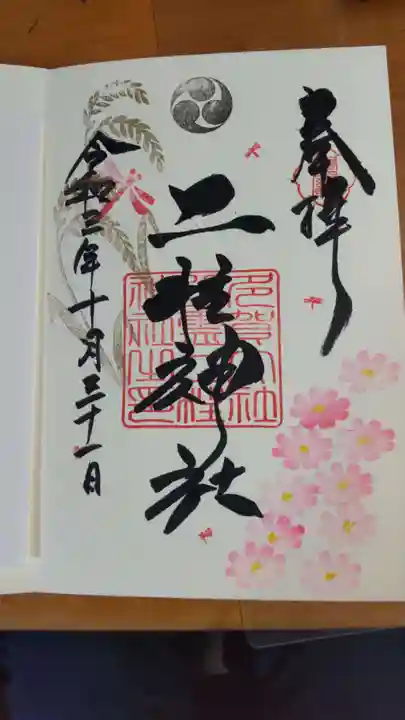 奉拝
二柱神社
令和三年十月三十一日